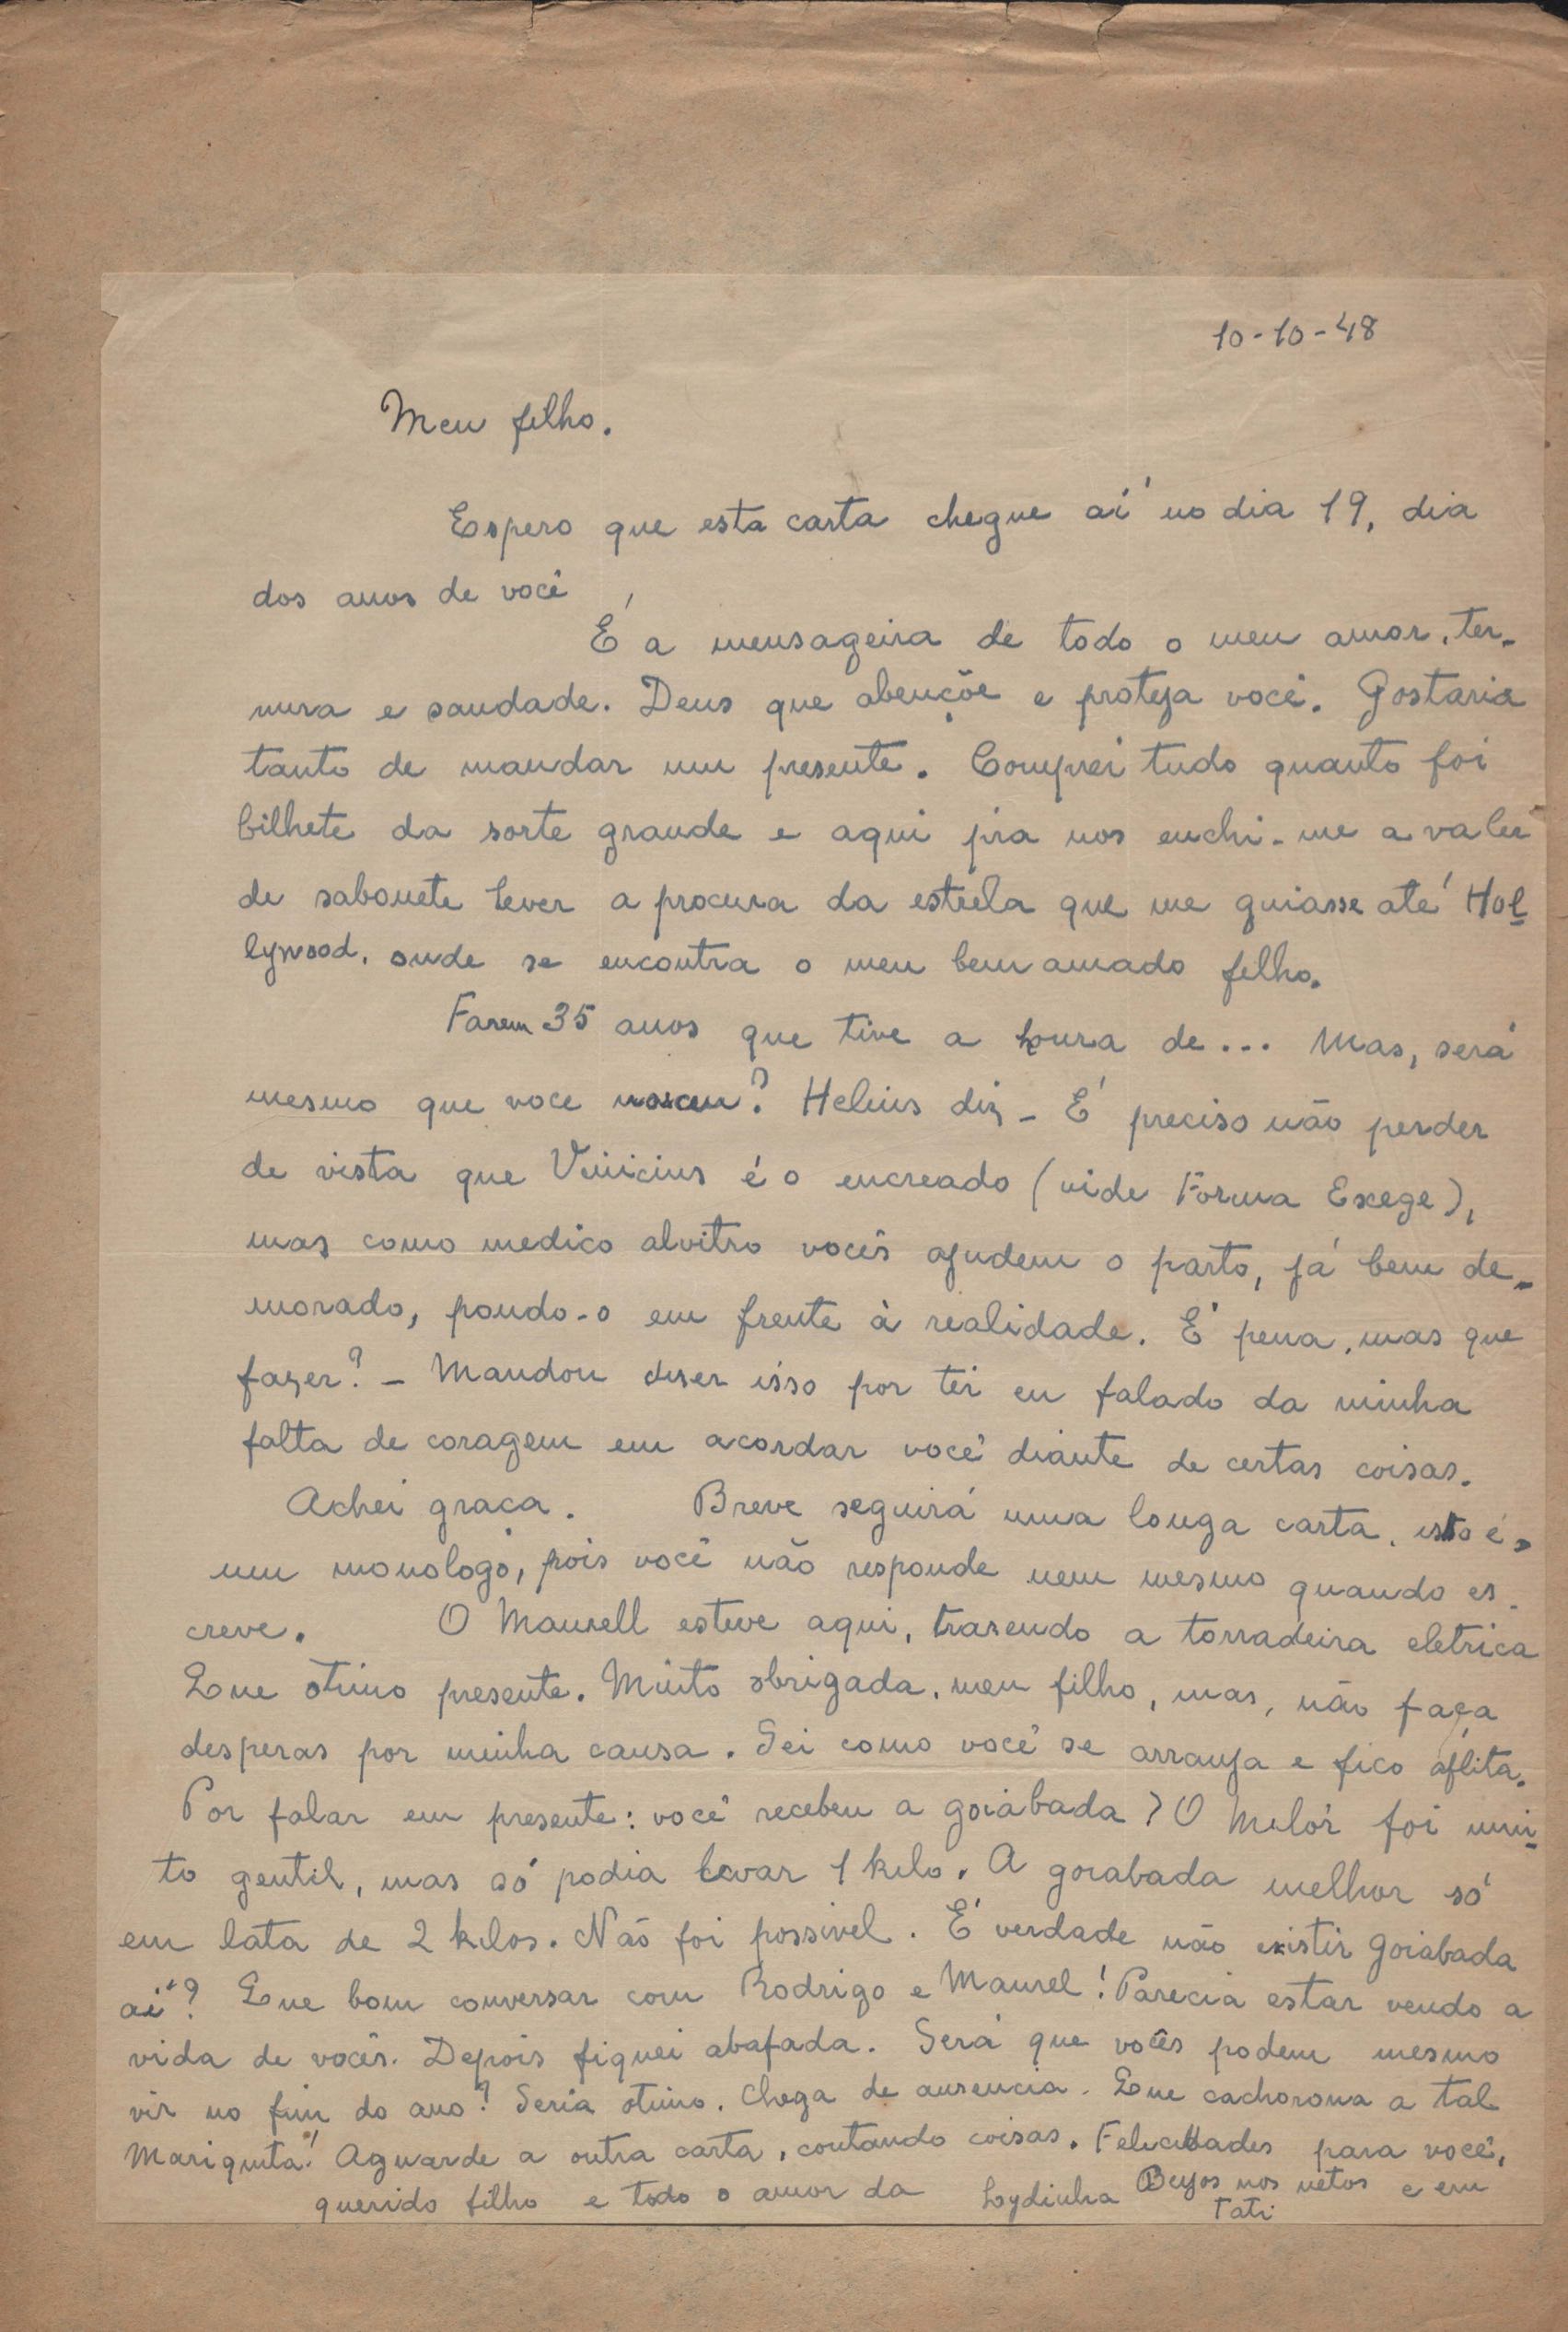 10-10-48
Meu filho.
Espero que esta carta chegue aí no dia 19, dia
dos anos de você
É a mensageira de todo o meu amor, ter-
nura e saudade. Deus que abençõe e proteja você. Gostaria
tanto de mandar um presente. Comprei tudo quanto foi
bilhete da sorte grande e aqui pra nos enchi-me a valer
de sabonete Lever a procura da estrela que me guiasse até Hol
lywood, onde se encontra o meu bem amado filho.
Fazem 35 anos que tive a honra de... Mas, será
mesmo que voce nasceu? Helius diz - É preciso não perder
de vista que Vinicius é o encreado (vide Forma Exege),
mas como medico alvitro vocês ajudem o parto, já bem de-
morado, pondo-o em frente à realidade. É pena, mas que
fazer? - Mandou diser isso por ter eu falado da minha
falta de coragem em acordar você diante de certas coisas.
Achei graça. Breve seguirá uma longa carta, isto é,
um monologo, pois você não responde nem mesmo quando es-
creve. O Maurell esteve aqui, trasendo a torradeira eletrica
Que otimo presente. Muito obrigada, meu filho, mas, não faça
desperas por minha causa. Sei como você se arranja e fico aflita.
Por falar em presente: você recebeu a goiabada? O Melór foi mui-
to gentil, mas só podia levar 1 kilo. A goiabada melhor só
em lata de 2 kilos. Não foi possivel. É verdade não existir goiabada
aí? Que bom conversar com Rodrigo e Maurel! Parecia estar vendo a
vida de vocês. Depois fiquei abafada. Será que vocês podem mesmo
vir no fim do ano? Seria otimo. Chega de ausencia. Que cachorona a tal
Mariquita! Aguarde a outra carta, contando coisas. Felicidades para você,
querido filho e todo o amor da Lydinha Beijos nos netos e em
Tati